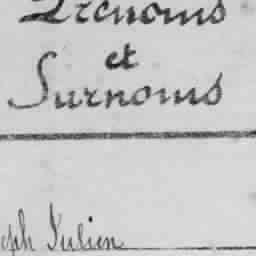 Prénoms
et
Surnoms
eph Julien